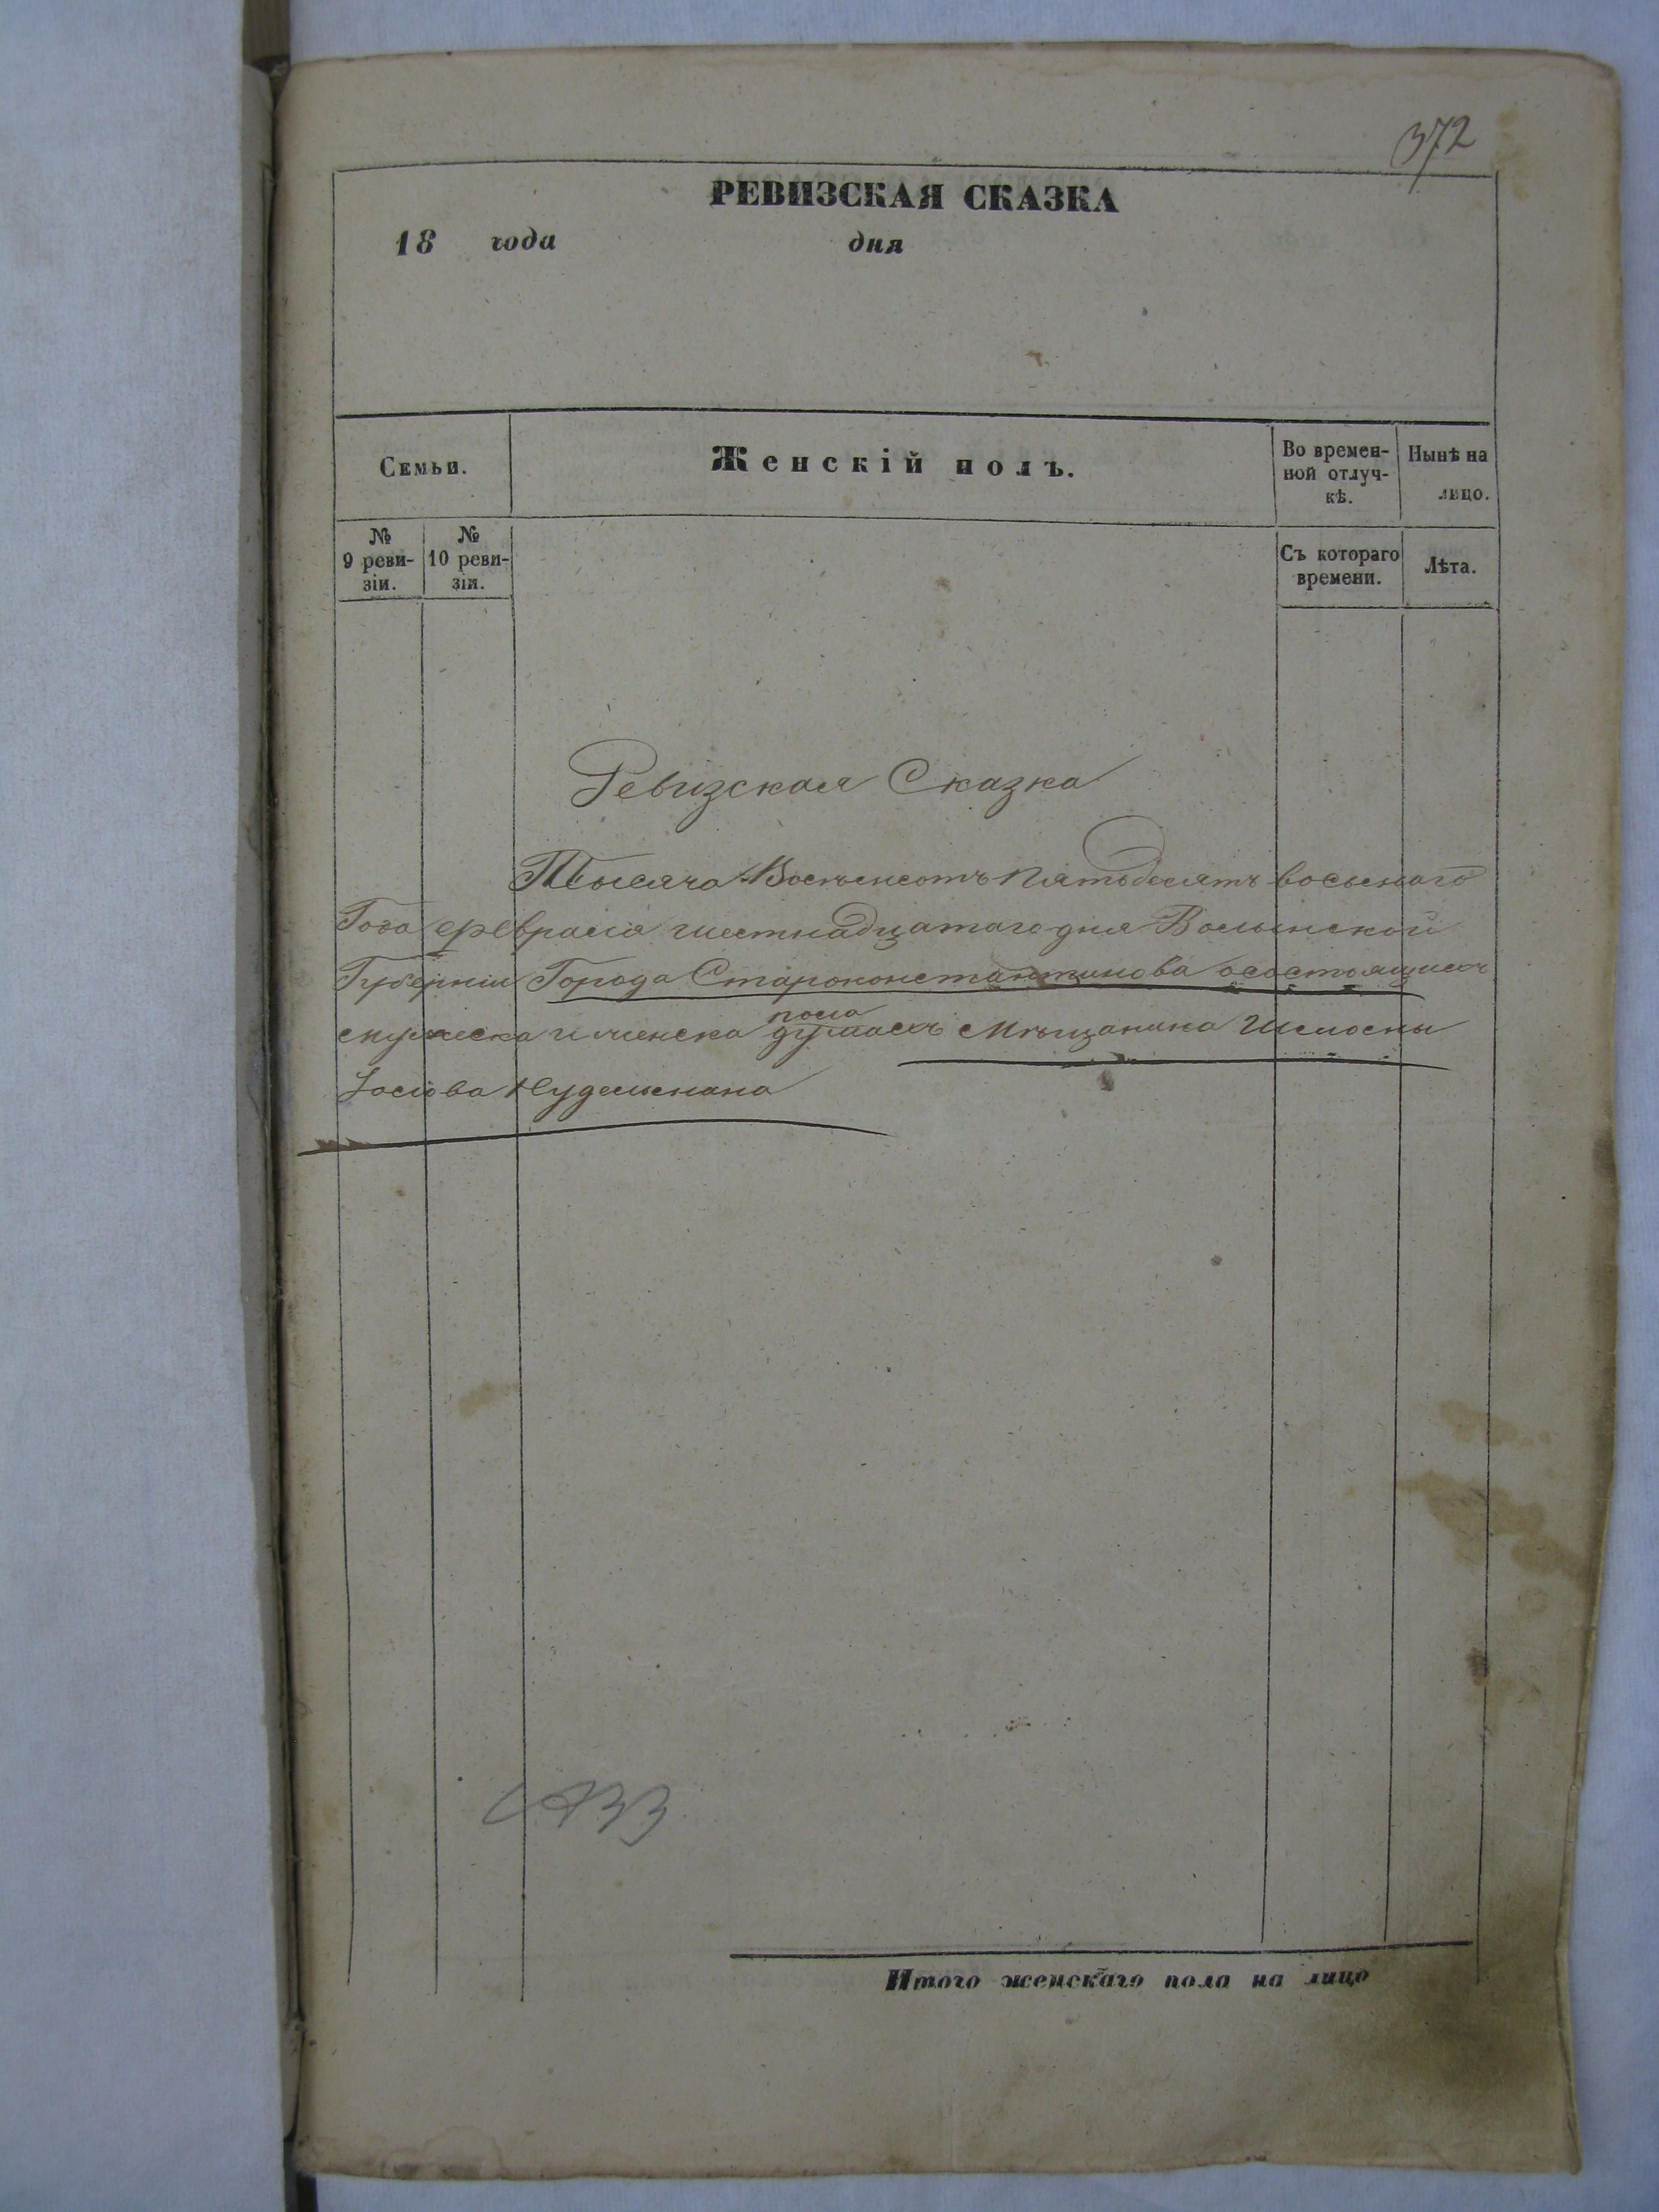 372
РЕВИЗСКАЯ СКАЗКА
18 года дня
Семьи. Женскій полъ. Во времен-ной отлуч-кѣ. Нынѣ на лицо.
№ 9 реви-зіи. № 10 реви-зіи. Съ котораго времени. Лѣта.
Ревизская Сказка
Тысяча Восемсотъ Пятьдесятъ восьмаго
Года февраля шестнадцатаго дня Волынской
Губерніи Города Староконстантинова осостоящихъ
мужеска и женска пола душахъ Мѣщанина Шмосны
Іосіова Нудельмана
Итого женскаго пола на лицо